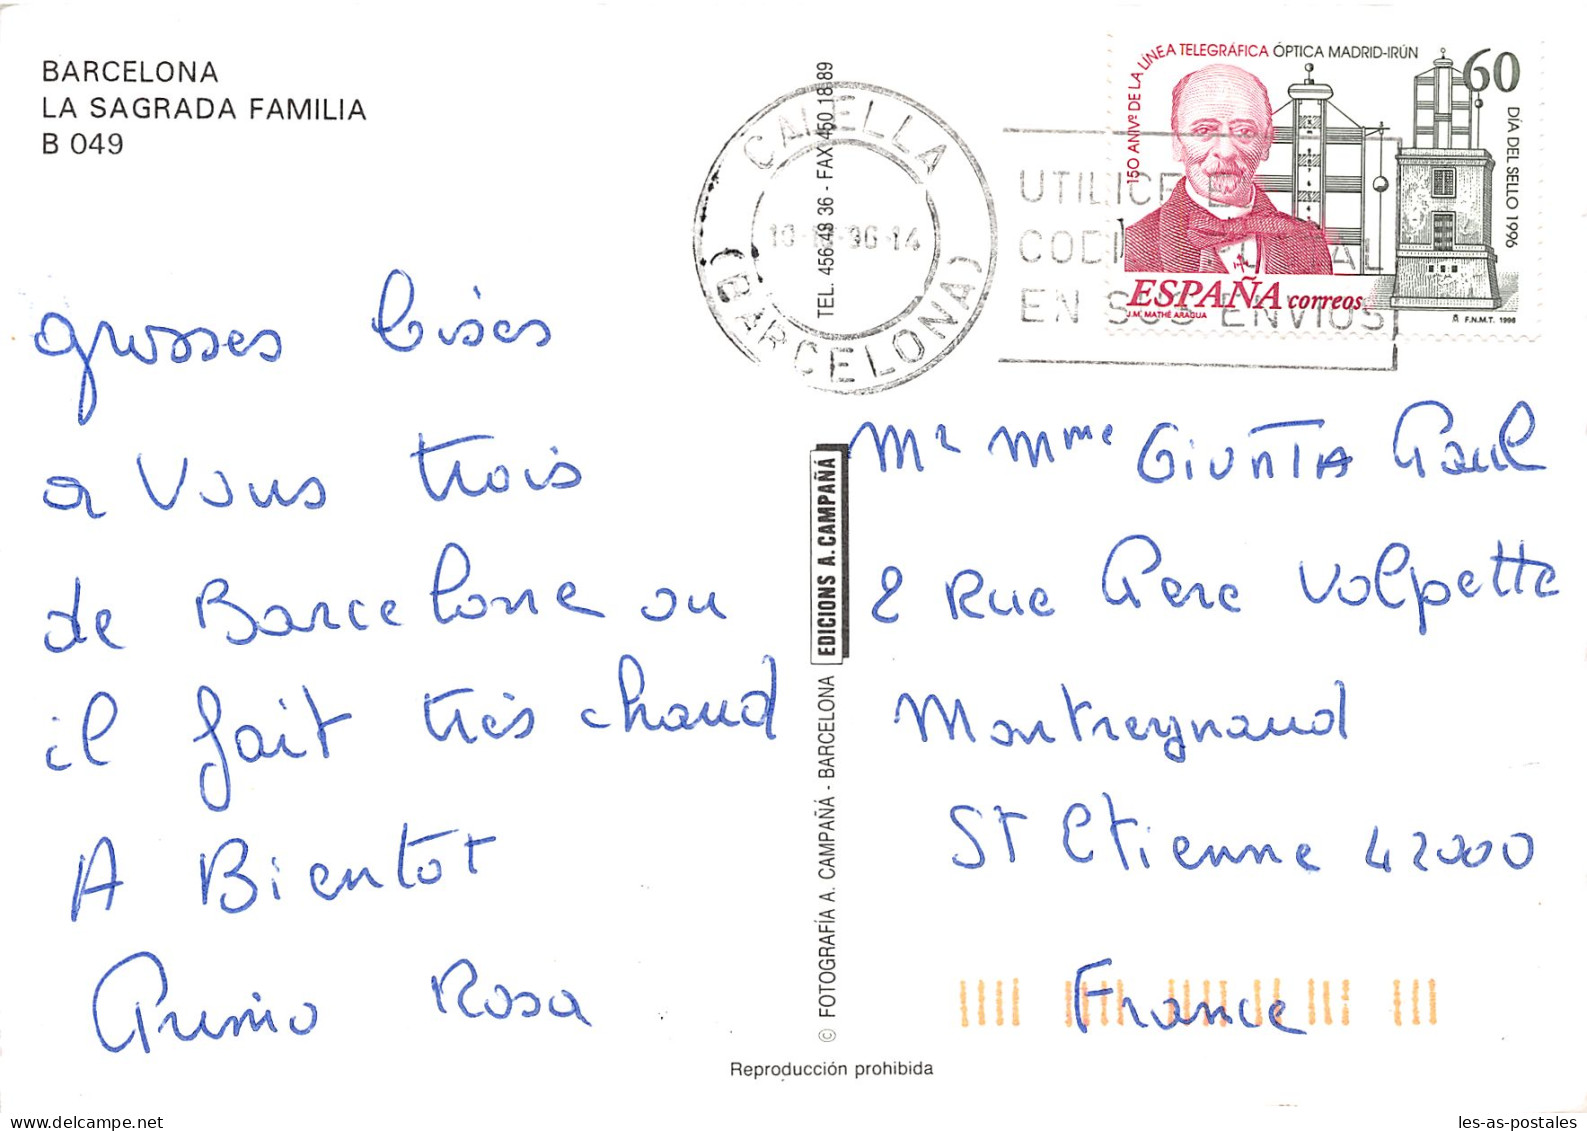 BARCELONA
LA SAGRADA FAMILIA
B 049
grosses bises
a Vous trois
de Barcelone ou
il fait très chaud
A Bientot
Primo Rosa
TEL. 456 48 36 - FAX 450 18 89
EDICIONS A. CAMPAÑÁ
© FOTOGRAFÍA A. CAMPAÑÁ - BARCELONA
Reproducción prohibida
CALELLA
(BARCELONA)
96-14
UTILICE
EN SUS ENVIOS
150 ANIVº DE LA LÍNEA TELEGRÁFICA ÓPTICA MADRID-IRÚN
60
DÍA DEL SELLO 1996
ESPAÑA correos
J.M. MATHÉ ARAGUA
F.N.M.T. 1996
Mr Mme GIUNTA Paul
2 Rue Pere Volpette
Montreynaud
ST Etienne 42000
France
les-as-postales